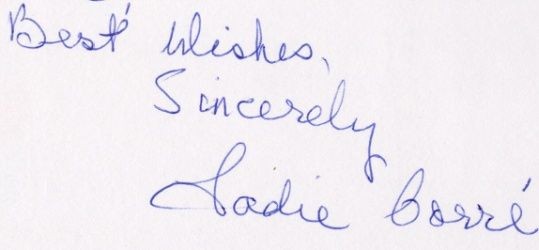 Best Wishes,
Sincerely
Sadie Corré